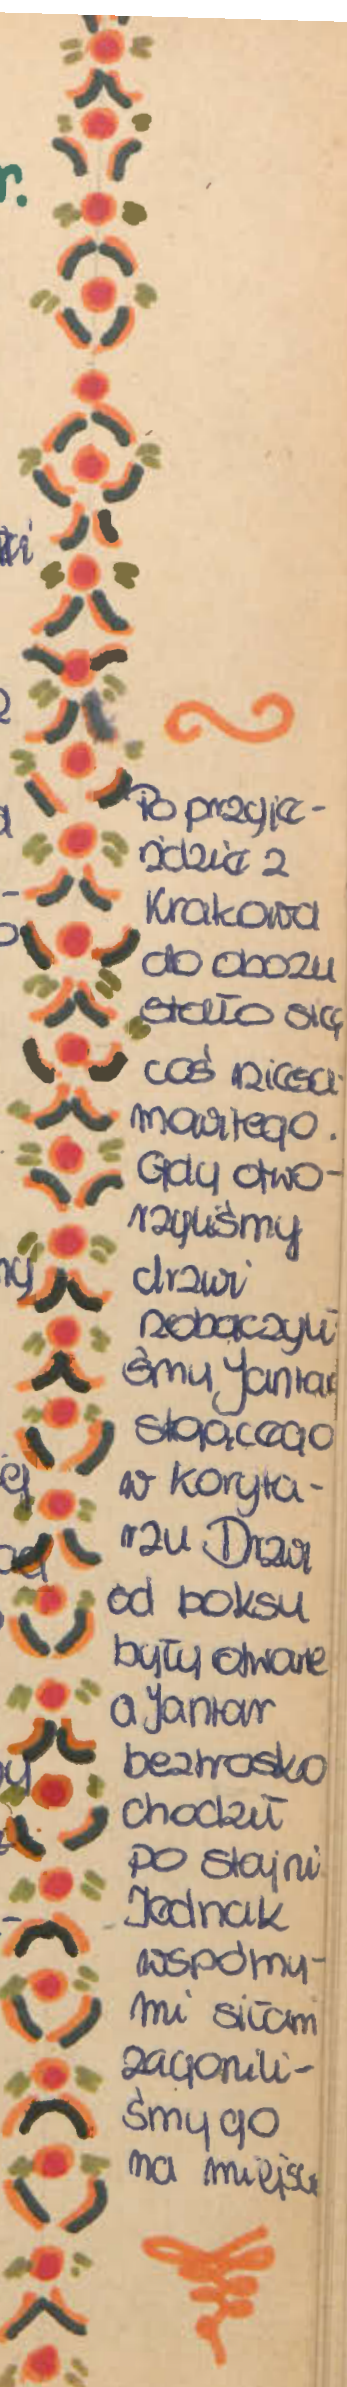 r.
Po przyje-
ździe z
Krakowa
do obozu
stało się
coś niesa-
mowitego.
Gdy otwo-
rzyliśmy
drzwi
zobaczyli
śmy Jantar
stojącego
w koryta-
rzu Drzwi
od boksu
były otware
a Jantar
beztrosko
chodził
po stajni
Jednak
wspólny-
mi siłami
zagonili-
śmy go
na miejsce